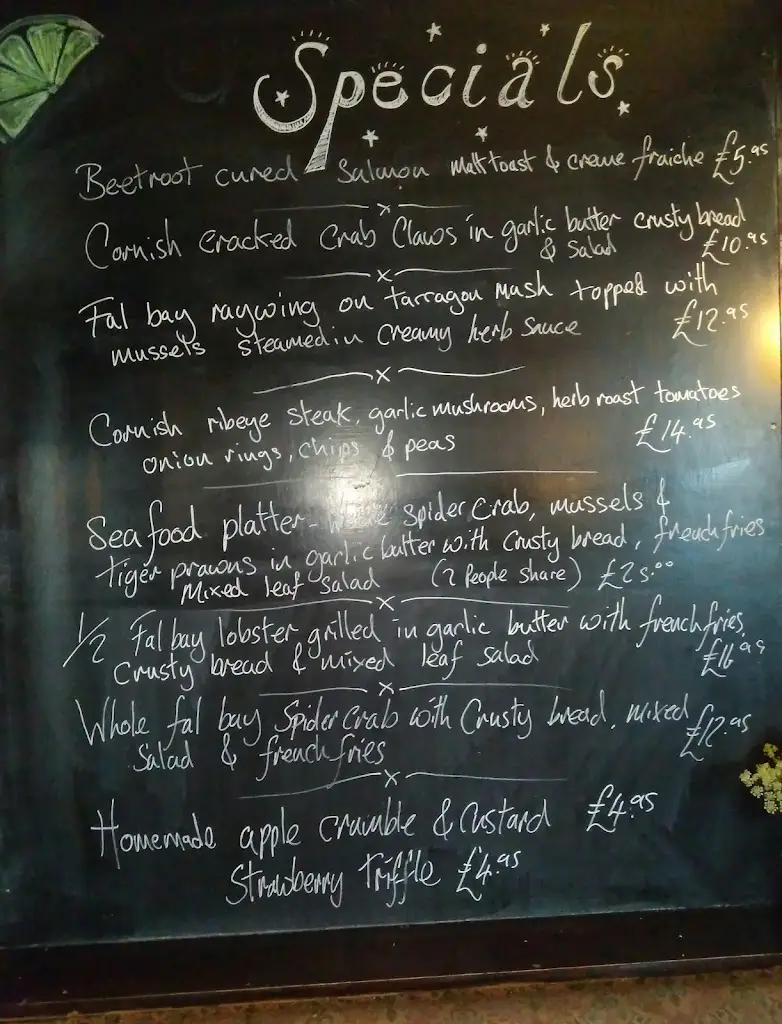 Specials
Beetroot cured Salmon Malt toast & creme fraiche £5.95
Cornish cracked Crab Claws in garlic butter crusty bread
& Salad £10.95
Fal bay raywing on tarragon mash topped with
mussels steamed in creamy herb sauce £12.95
Cornish ribeye steak, garlic mushrooms, herb roast tomatoes
onion rings, chips & peas £14.95
Seafood platter - Spider Crab, mussels &
tiger prawns in garlic butter with Crusty bread, french fries
Mixed leaf salad (2 People share) £25.00
1/2 Fal bay lobster grilled in garlic butter with french fries,
Crusty bread & mixed leaf salad
Whole fal bay Spider Crab with Crusty bread, mixed
Salad & french fries £12.95
Homemade apple crumble & Custard £4.95
Strawberry Triffle £4.95